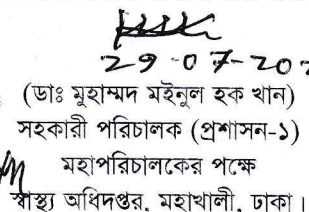 29-07-20
(ডাঃ মুহাম্মদ মইনুল হক খান)
সহকারী পরিচালক (প্রশাসন-১)
মহাপরিচালকের পক্ষে
স্বাস্থ্য অধিদপ্তর, মহাখালী, ঢাকা।